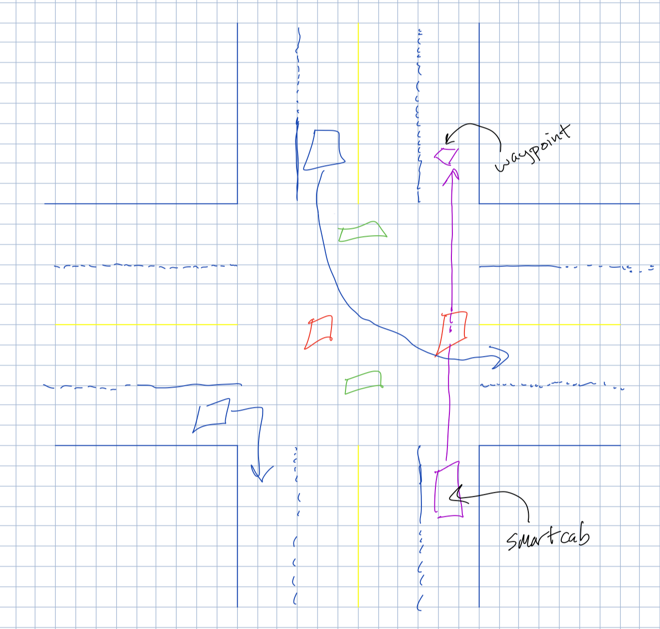 waypoint
smartcab